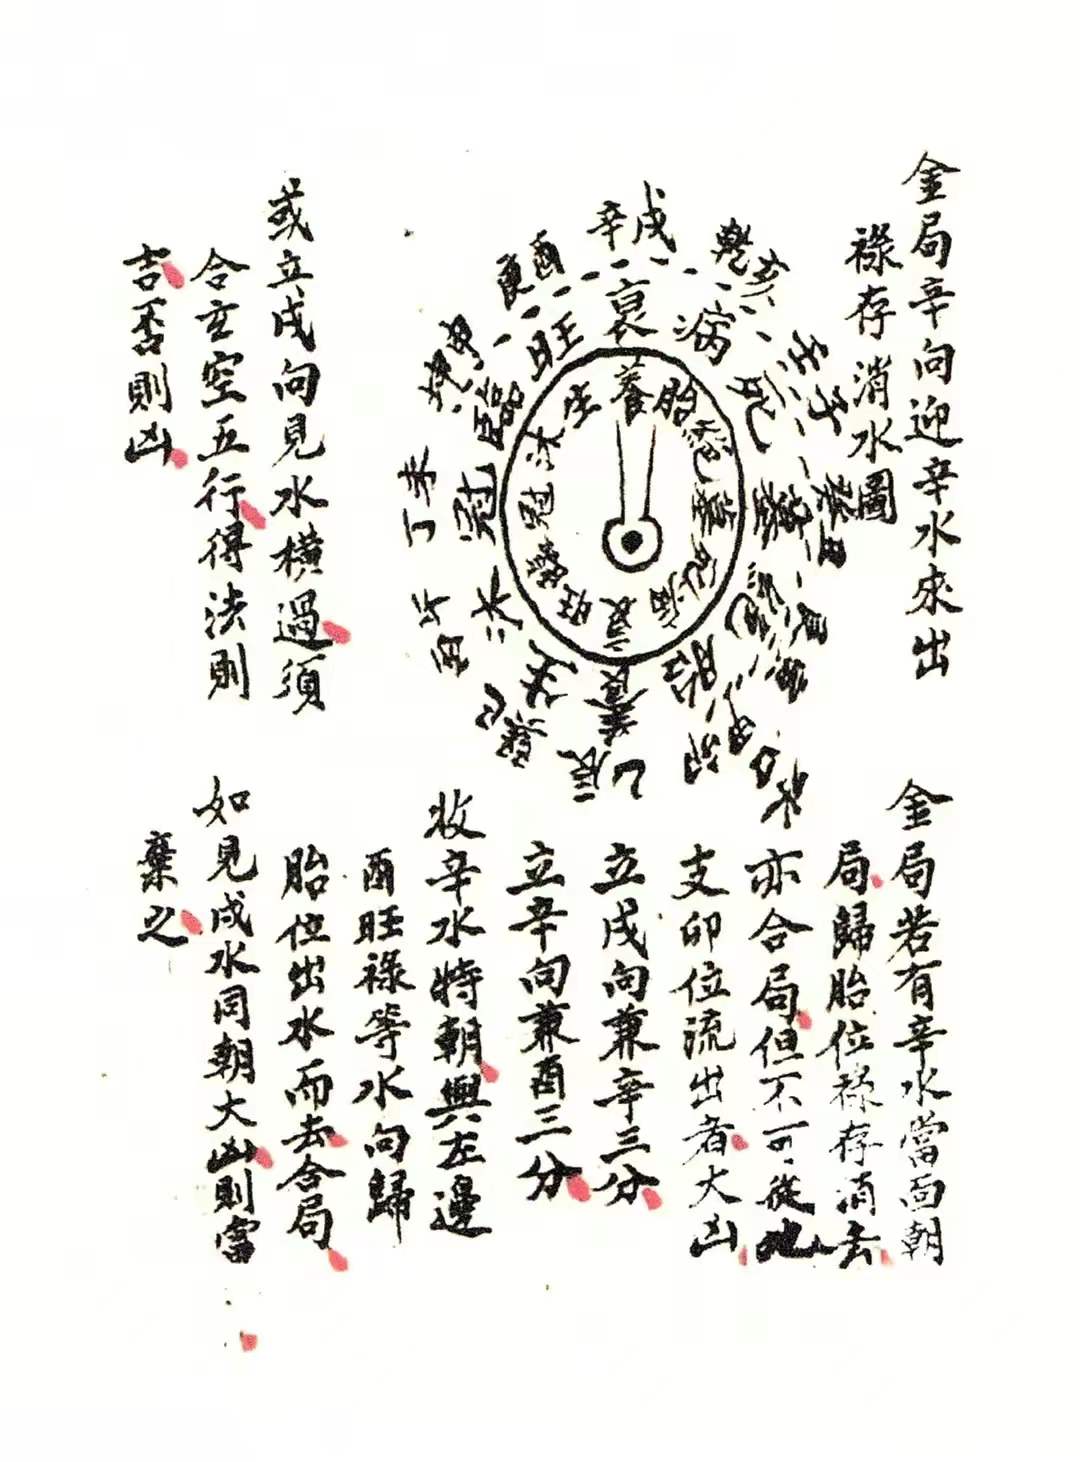 金局辛向迎辛水來出
祿存消水圖
戌
辛
乾亥
壬子
癸丑
艮寅
甲卯
水口
乙辰
巽巳
丙午
丁未
坤申
庚酉
衰
病
死
墓
絕
胎
養
生
沐
冠
臨
旺
養
胎
絕
墓
死
病
衰
旺
臨
冠
沐
生
或立戌向見水橫過須
合玄空五行得法則
吉否則凶
金局若有辛水當面朝
局歸胎位祿存消去
亦合局但不可從地
支卯位流出者大凶
立戌向兼辛三分
立辛向兼酉三分
收辛水特朝與左邊
酉旺祿等水向歸
胎位出水而去合局
如見戌水同朝大凶則當
棄之